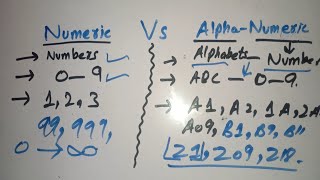 Numeric Vs Alpha-Numeric
→ Numbers
→ 0—9
→ 1, 2, 3
99, 999,
0 → ∞
→ Alphabets— Number
→ ABC — 0—9.
→ A1, A2, 1A, 2A
A09, B1, B9, B11
21, 209, 212.